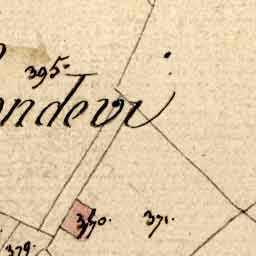 395.
ondevi
370.
371.
379.